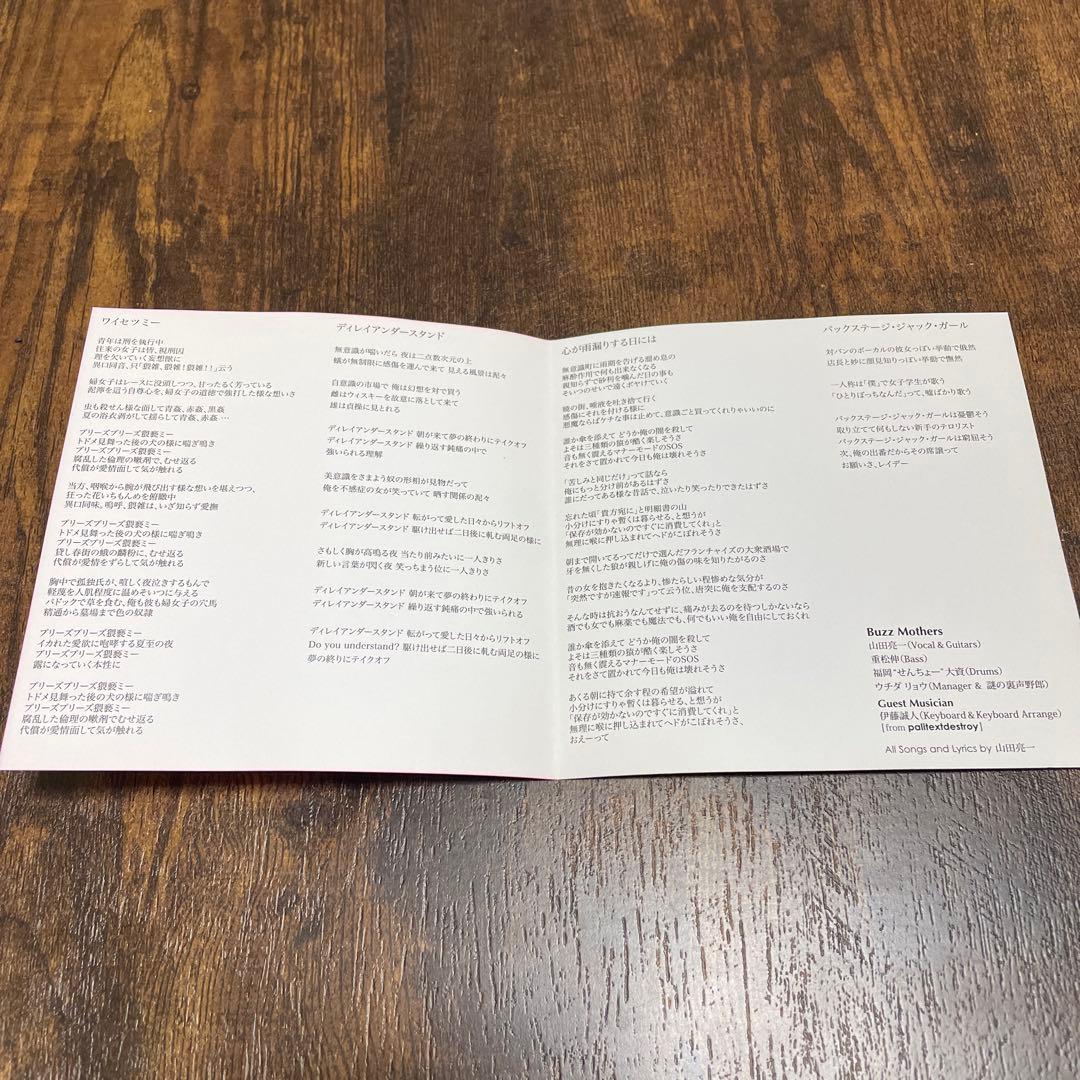 ワイセツミー
青年は刑を執行中
往来の女子は皆、視刑囚
理を欠いていく妄想獣に
異口同音、只「猥雑、猥雑!猥雑!!」云う
婦女子はレースに没頭しつつ、甘ったるく芳っている
泥濘を這う自尊心を、婦女子の道徳で強打した様な想いさ
虫も殺せん様な面して青姦、赤姦、黒姦
夏の浴衣剥がして揺らして青姦、赤姦…
プリーズプリーズ猥褻ミー
トドメ見舞った後の犬の様に喘ぎ鳴き
プリーズプリーズ猥褻ミー
腐乱した倫理の嗽剤で、むせ返る
代償が愛情面して気が触れる
当方、咽喉から腕が飛び出す様な想いを堪えつつ、
狂った花いちもんめを俯瞰中
異口同味。嗚呼、猥雑は、いざ知らず愛撫
プリーズプリーズ猥褻ミー
トドメ見舞った後の犬の様に喘ぎ鳴き
プリーズプリーズ猥褻ミー
貸し春街の蛾の麟粉に、むせ返る
代償が愛情をずらして気が触れる
胸中で孤独氏が、喧しく夜泣きするもんで
軽蔑を人肌程度に温めそいつに与える
パドックで草を食む、俺も彼も婦女子の穴馬
精通から墓場まで色の奴隷
プリーズプリーズ猥褻ミー
イカれた愛欲に咆哮する夏至の夜
プリーズプリーズ猥褻ミー
露になっていく本性に
プリーズプリーズ猥褻ミー
トドメ見舞った後の犬の様に喘ぎ鳴き
プリーズプリーズ猥褻ミー
腐乱した倫理の嗽剤でむせ返る
代償が愛情面して気が触れる
ディレイアンダースタンド
無意識が喘いだら 夜は二点数次元の上
蟻が無制限に感傷を運んで来て 見える風景は泥々
自意識の市場で 俺は幻想を対で買う
雌はウィスキーを故意に落として来て
雄は貞操に見とれる
ディレイアンダースタンド 朝が来て夢の終わりにテイクオフ
ディレイアンダースタンド 繰り返す鈍痛の中で
強いられる理解
美意識をさまよう奴の形相が見物だって
俺を不感症の女が笑っていて 晒す関係の泥々
ディレイアンダースタンド 転がって愛した日々からリフトオフ
ディレイアンダースタンド 駆け出せば二日後に軋む両足の様に
さもしく胸が高鳴る夜 当たり前みたいに一人きりさ
新しい言葉が閃く夜 笑っちまう位に一人きりさ
ディレイアンダースタンド 朝が来て夢の終わりにテイクオフ
ディレイアンダースタンド 繰り返す鈍痛の中で強いられる
ディレイアンダースタンド 転がって愛した日々からリフトオフ
Do you understand? 駆け出せば二日後に軋む両足の様に
夢の終りにテイクオフ
心が雨漏りする日には
無意識町に雨期を告げる溜め息の
麻酔作用で何も出来なくなる
親知らずで砂利を噛んだ日の事も
そいつのせいで遠くボヤけていく
暁の街、唾液を吐き捨て行く
感傷にそれを付ける様に
悪魔ならばケチな事は止めて、意識ごと買ってくれりゃいいのに
誰か傘を添えて どうか俺の闇を殺して
よそは三種類の猿が酷く楽しそう
音も無く震えるマナーモードのSOS
それをさて置かれて今日も俺は壊れそう
「苦しみと同じだけ」って話なら
俺にもっと分け前があるはずさ
誰にだってある様な昔話で、泣いたり笑ったりできたはずさ
忘れた頃「貴方宛に」と明細書の山
小分けにすりゃ暫くは暮らせる、と想うが
「保存が効かないのですぐに消費してくれ」と
無理に喉に押し込まれてヘドがこぼれそう
朝まで開いてるってだけで選んだフランチャイズの大衆酒場で
牙を無くした狼が親しげに俺の傷の味を知りたがるのさ
昔の女を抱きたくなるより、惨たらしい程惨めな気分が
「突然ですが速報です」って云う位、唐突に俺を支配するのさ
そんな時は抗おうなんてせずに、痛みが去るのを待つしかないなら
酒でも女でも麻薬でも魔法でも、何でもいい俺を自由にしておくれ
誰か傘を添えて どうか俺の闇を殺して
よそは三種類の猿が酷く楽しそう
音も無く震えるマナーモードのSOS
それをさて置かれて今日も俺は壊れそう
あくる朝に持て余す程の希望が溢れて
小分けにすりゃ暫くは暮らせる、と想うが
「保存が効かないのですぐに消費してくれ」と
無理に喉に押し込まれてヘドがこぼれそうさ、
おえーって
バックステージ・ジャック・ガール
対バンのボーカルの彼女っぽい挙動で俄然
店長と妙に顔見知りっぽい挙動で憮然
一人称は「僕」で女子学生が歌う
「ひとりぼっちなんだ」って、嘘ばかり歌う
バックステージ・ジャック・ガールは憂鬱そう
取り立てて何もしない新手のテロリスト
バックステージ・ジャック・ガールは窮屈そう
次、俺の出番だからその席譲って
お願いさ、レイデー
Buzz Mothers
山田亮一(Vocal & Guitars)
重松伸(Bass)
福岡“せんちょー”大資(Drums)
ウチダ リョウ(Manager & 謎の裏声野郎)
Guest Musician
伊藤誠人(Keyboard & Keyboard Arrange)
[from palitextdestroy]
All Songs and Lyrics by 山田亮一